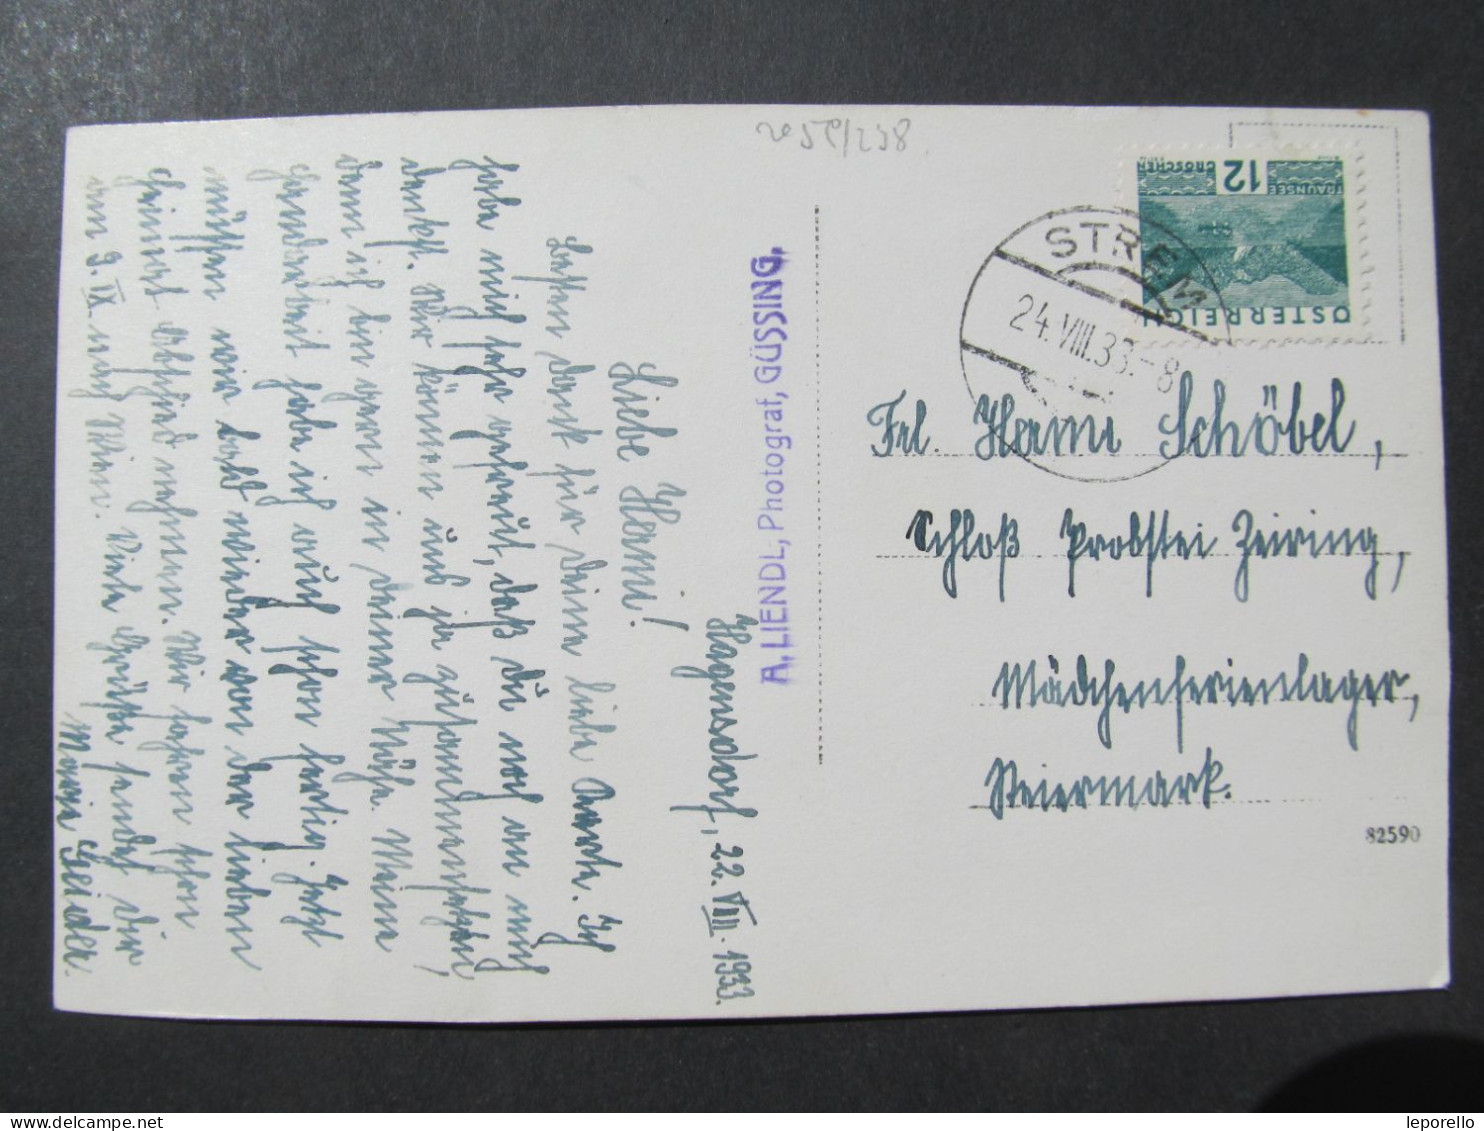 2052/238
Hagensdorf, 22. VIII. 1933.
Liebe Hami!
Besten Dank für deine liebe Karte. Ich
habe mich sehr gefreut, daß du noch an mich
denkst. Wir können uns ja zusammensetzen,
denn ich bin gern in deiner Nähe. Meine
Handarbeit habe ich auch schon fertig. Jetzt
müssen wir bald wieder von der lieben
Heimat Abschied nehmen. Wir fahren schon
am 9. IX nach Wien. Viele Grüße sendet dir
Maria Geider.
A. LIENDL, Photograf, GÜSSING.
12
GROSCHEN
TRAUNSEE
ÖSTERREICH
STREM
24.VIII.33.-8
Frl. Hami Schöbel,
Schloß Probstei Zeiring,
Mädchenferienlager,
Steiermark.
82590
leporello